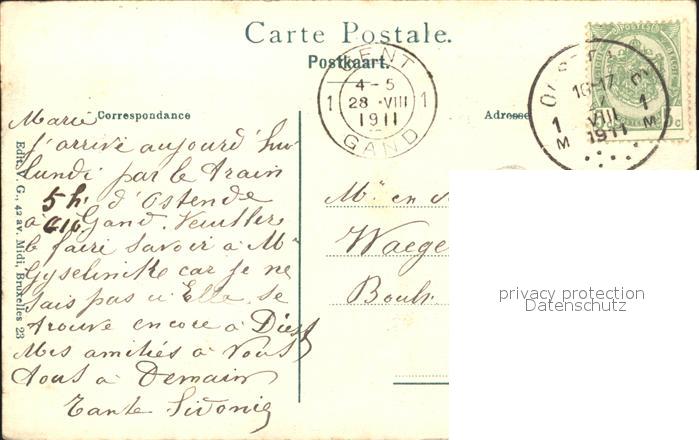 Carte Postale.
Postkaart.
GENT
4-5
1 28 VIII 1
1911
GAND
1911
Correspondance
Adresse
Marie
J'arrive aujourd'hui
lundi par le train
5 h. d'Ostende
à Gand. Veuillez
le faire savoir à Mr
Gyselinck car je ne
sais pas si Elle se
trouve encore à Diest
Mes amitiés à Vous
tous à Demain
Tante Sidonie
Edit. V. G., 42 av. Midi, Bruxelles 23
Mr en
Waege
Boul
privacy protection
Datenschutz